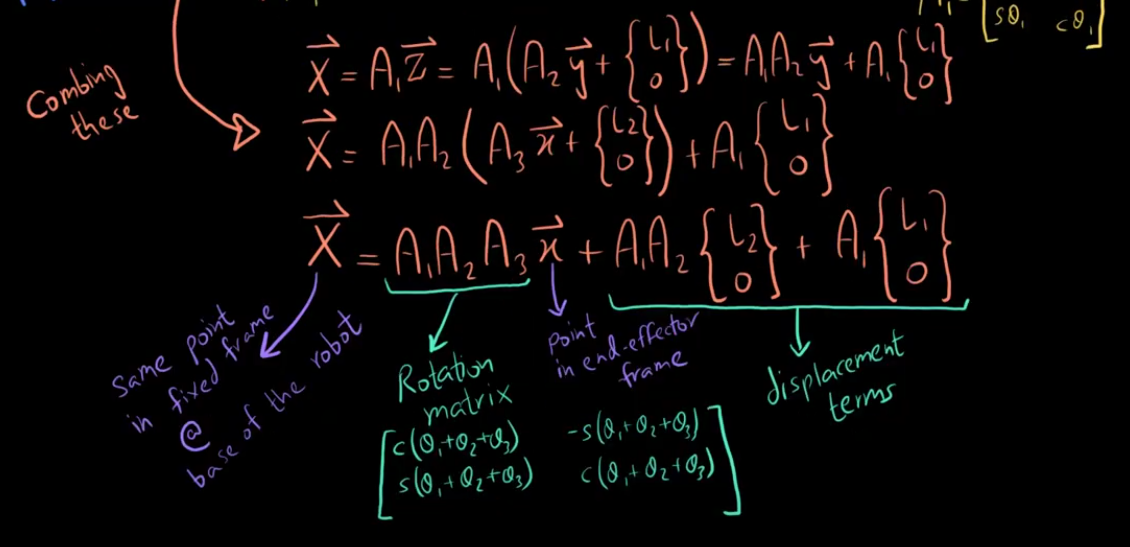 sθ₁ cθ₁
X⃗ = A₁z⃗ = A₁(A₂y⃗ + {L₁ 0}) = A₁A₂y⃗ + A₁{L₁ 0}
Combing
these
X⃗ = A₁A₂(A₃x⃗ + {L₂ 0}) + A₁{L₁ 0}
X⃗ = A₁A₂A₃x⃗ + A₁A₂{L₂ 0} + A₁{L₁ 0}
Same point
in fixed frame
@
base of the robot
Rotation
matrix
[c(θ₁+θ₂+θ₃) -s(θ₁+θ₂+θ₃)
s(θ₁+θ₂+θ₃) c(θ₁+θ₂+θ₃)]
point
in end-effector
frame
displacement
terms